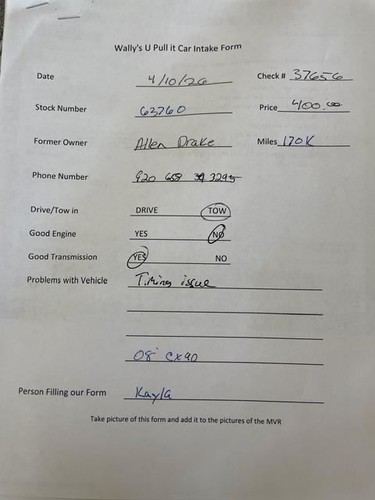 Wally's U Pull it Car Intake Form
Date 4/10/26 Check # 37656
Stock Number 63760 Price 400.00
Former Owner Allen Drake Miles 170K
Phone Number 920 3295
Drive/Tow in DRIVE TOW
Good Engine YES NO
Good Transmission YES NO
Problems with Vehicle Timing issue
08' CX90
Person Filling our Form Kayla
Take picture of this form and add it to the pictures of the MVR